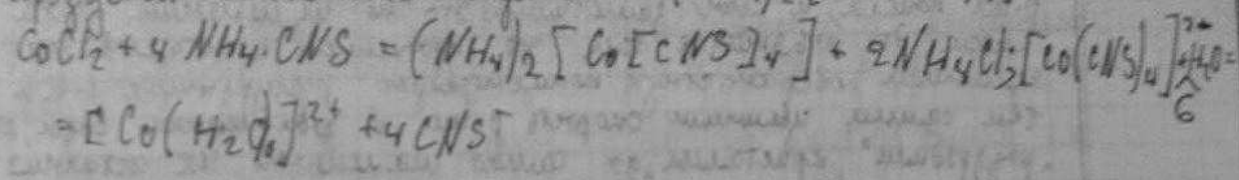 CoCl₂ + 4 NH₄·CNS = (NH₄)₂ [Co[CNS]₄] + 2NH₄Cl; [Co(CNS)₄]²⁻ + 6 H₂O =
= [Co(H₂O)₆]²⁺ + 4CNS⁻